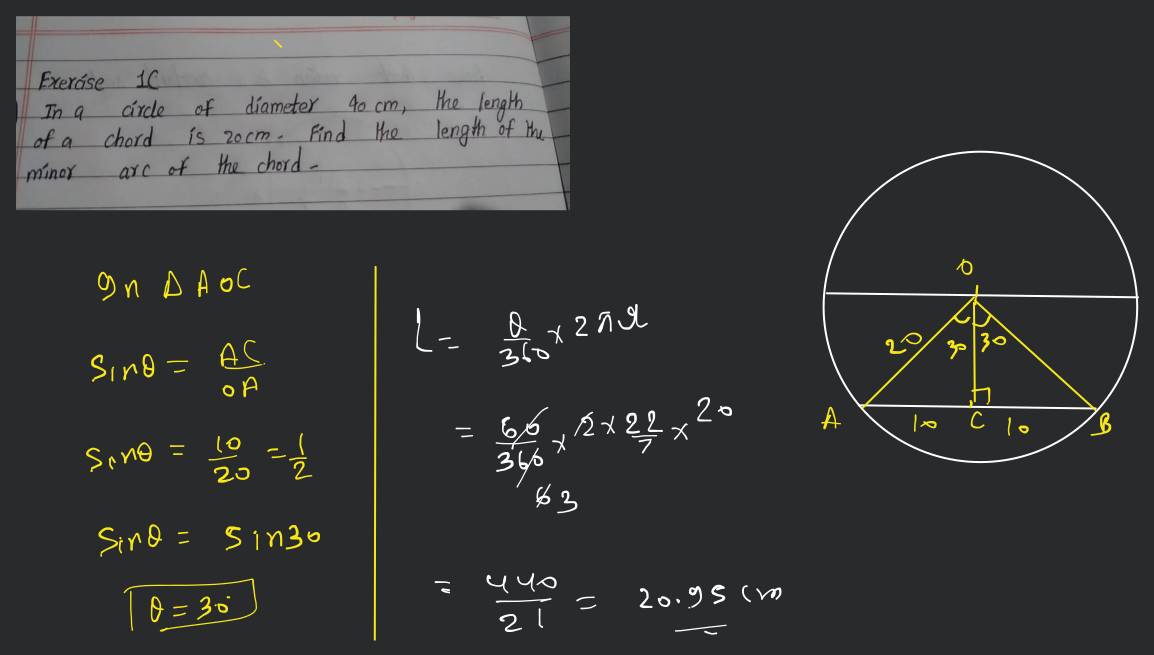 Exercise 1C
In a circle of diameter 40 cm, the length
of a chord is 20cm. Find the length of the
minor arc of the chord.
In Δ AOC
Sinθ = AC/OA
Sinθ = 10/20 = 1/2
Sinθ = Sin30
θ = 30°
L = θ/360 × 2πr
= 60/360 × 2 × 22/7 × 20
6 3
= 440/21 = 20.95 cm
O
20 30 30
A 10 C 10 B